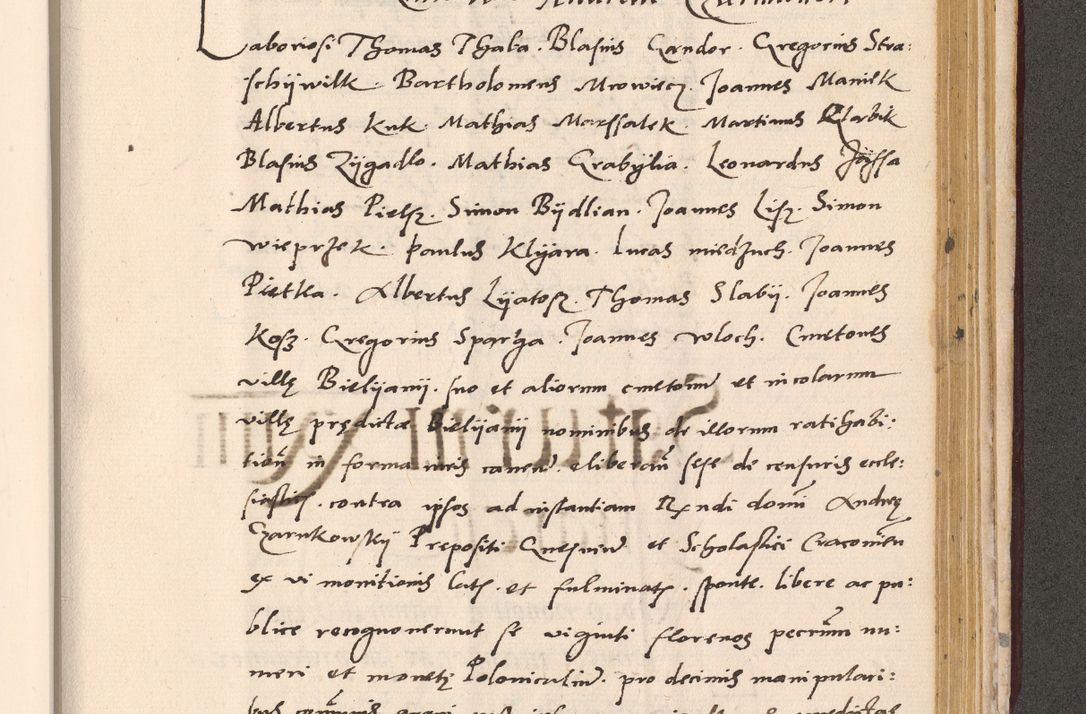 Laboriosi Thomas Thaba. Blasius Gandor. Gregorius Stra:
schÿwilk. Bartholomeus Mrowiecz. Joannes Maniek
Albertus Kuk. Mathias Marssalek. Martinus Garbik
Blasius Zÿgadlo. Mathias Grabÿlia. Leonardus Jassa
Mathias Pielsz. Simon Bÿdlian. Joannes Lisz. Simon
wieprzek. Paulus Klÿara. Lucas miedzuch. Joannes
Pietka. Albertus Lÿatosz. Thomas Slabÿ. Joannes
Kosz. Gregorius Sparga. Joannes Wloch. Cmetones
villę Bielÿanÿ. suo et aliorum cmetonu et incolarum
villę prędictæ bielÿanÿ nominibus de illorum ratihabi:
tion in forma iuris caven. eliberan sese de censuris eccle:
siasticis. contra ipsos ad instantiam Rndi domi Andreę
Czarnkowskÿ Prepositi Gnesnen et Scholastici Cracovien
ex vi monitionis lats. et fulminats. sponte. libere ac pu:
blice recognoverunt se viginti florenos pecum nu:
meri et monetę Polonicalium. pro decimis manipulari: